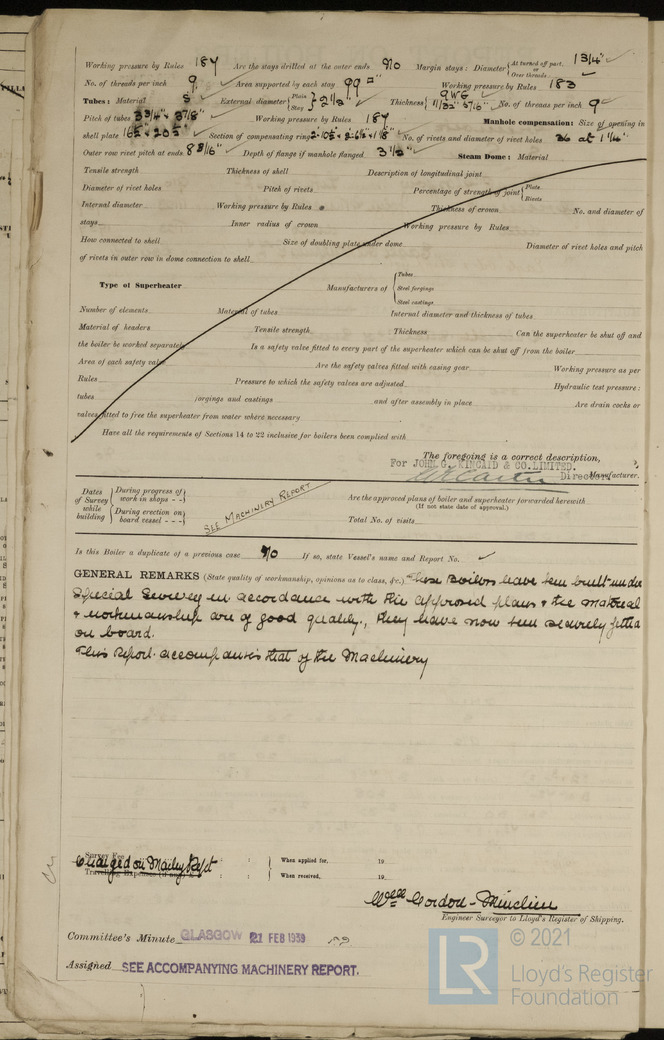 Working pressure by Rules 187 Are the stays drilled at the outer ends No Margin stays: Diameter { At turned off part, or Over threads 1 3/4" ✓
No. of threads per inch 9 ✓ Area supported by each stay 99 □" ✓ Working pressure by Rules 183 ✓
Tubes: Material S ✓ External diameter { Plain Stay } 2 1/2" ✓ Thickness { 9 WG 11/32" & 5/16" ✓ No. of threads per inch 9 ✓
Pitch of tubes 3 3/4" × 3 7/8" ✓ Working pressure by Rules 187 ✓ Manhole compensation: Size of opening in
shell plate Section of compensating ring No. of rivets and diameter of rivet holes 36 at 1 1/4" ✓
Outer row rivet pitch at ends 8 8/16" ✓ Depth of flange if manhole flanged 3 1/2" ✓ Steam Dome: Material
Tensile strength Thickness of shell Description of longitudinal joint
Diameter of rivet holes Pitch of rivets Percentage of strength of joint { Plate Rivets
Internal diameter Working pressure by Rules Thickness of crown No. and diameter of
stays Inner radius of crown Working pressure by Rules
How connected to shell Size of doubling plate under dome Diameter of rivet holes and pitch
of rivets in outer row in dome connection to shell
Type of Superheater Manufacturers of { Tubes Steel forgings Steel castings
Number of elements Material of tubes Internal diameter and thickness of tubes
Material of headers Tensile strength Thickness Can the superheater be shut off and
the boiler be worked separately Is a safety valve fitted to every part of the superheater which can be shut off from the boiler
Area of each safety valve Are the safety valves fitted with easing gear Working pressure as per
Rules Pressure to which the safety valves are adjusted Hydraulic test pressure:
tubes forgings and castings and after assembly in place Are drain cocks or
valves fitted to free the superheater from water where necessary
Have all the requirements of Sections 14 to 22 inclusive for boilers been complied with
The foregoing is a correct description,
For JOHN G. KINCAID & CO. LIMITED.
Director Manufacturer.
Dates of Survey while building { During progress of work in shops - - } { During erection on board vessel - - - }
SEE MACHINERY REPORT
Are the approved plans of boiler and superheater forwarded herewith
(If not state date of approval.)
Total No. of visits
Is this Boiler a duplicate of a previous case No If so, state Vessel's name and Report No. ✓
GENERAL REMARKS (State quality of workmanship, opinions as to class, &c.) These Boilers have been built under
Special Survey in accordance with the approved plans & the material
& workmanship are of good quality, they have now been securely fitted
on board.
This Report accompanies that of the Machinery
Survey Fee : : When applied for, 19
Charged on Machy Rept
Travelling Expenses (if any) £ : : When received, 19
Wm Gordon-Minchin
Engineer Surveyor to Lloyd's Register of Shipping.
Committee's Minute GLASGOW 21 FEB 1939
Assigned SEE ACCOMPANYING MACHINERY REPORT.
LR © 2021
Lloyd's Register
Foundation